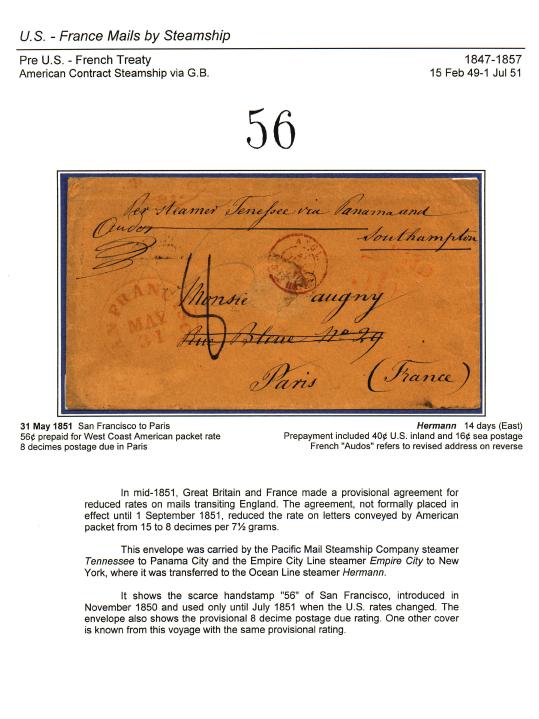 U.S. - France Mails by Steamship
Pre U.S. - French Treaty 1847-1857
American Contract Steamship via G.B. 15 Feb 49-1 Jul 51
56
Per steamer Tenessee via Panama and
Southampton
Audos
ANGL.
SAN FRANC
MAY
31
Monsie augny
Rue Bleue No 29
Paris (France)
31 May 1851 San Francisco to Paris
56¢ prepaid for West Coast American packet rate
8 decimes postage due in Paris
Hermann 14 days (East)
Prepayment included 40¢ U.S. inland and 16¢ sea postage
French "Audos" refers to revised address on reverse
In mid-1851, Great Britain and France made a provisional agreement for
reduced rates on mails transiting England. The agreement, not formally placed in
effect until 1 September 1851, reduced the rate on letters conveyed by American
packet from 15 to 8 decimes per 7½ grams.
This envelope was carried by the Pacific Mail Steamship Company steamer
Tennessee to Panama City and the Empire City Line steamer Empire City to New
York, where it was transferred to the Ocean Line steamer Hermann.
It shows the scarce handstamp "56" of San Francisco, introduced in
November 1850 and used only until July 1851 when the U.S. rates changed. The
envelope also shows the provisional 8 decime postage due rating. One other cover
is known from this voyage with the same provisional rating.